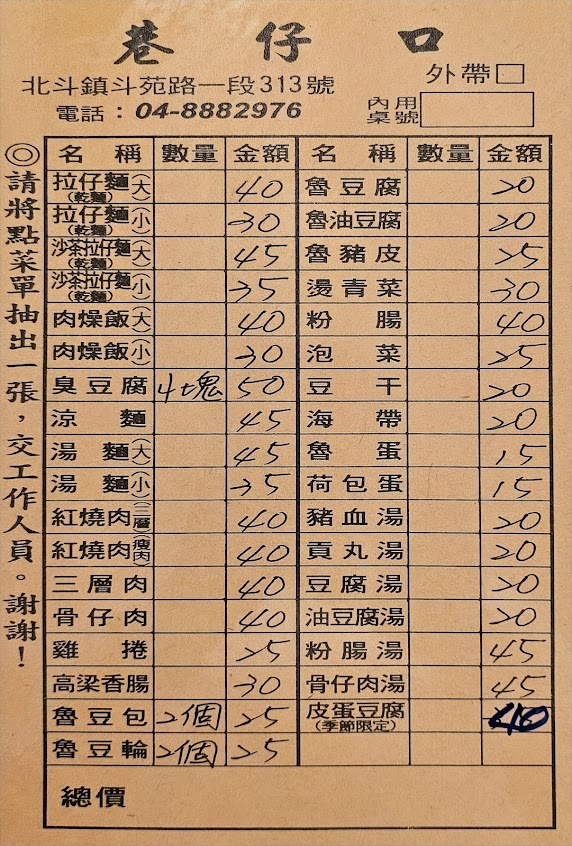 巷仔口
北斗鎮斗苑路一段313號
電話：04-8882976
外帶□
內用桌號
◎請將點菜單抽出一張，交工作人員。謝謝！
名稱 數量 金額 名稱 數量 金額
拉仔麵(大)(乾麵) 40 魯豆腐 20
拉仔麵(小)(乾麵) 30 魯油豆腐 20
沙茶拉仔麵(大)(乾麵) 45 魯豬皮 25
沙茶拉仔麵(小)(乾麵) 35 燙青菜 30
肉燥飯(大) 40 粉腸 40
肉燥飯(小) 30 泡菜 25
臭豆腐 4塊 50 豆干 20
涼麵 45 海帶 20
湯麵(大) 45 魯蛋 15
湯麵(小) 35 荷包蛋 15
紅燒肉(三層) 40 豬血湯 20
紅燒肉(瘦肉) 40 貢丸湯 20
三層肉 40 豆腐湯 20
骨仔肉 40 油豆腐湯 20
雞捲 25 粉腸湯 45
高梁香腸 30 骨仔肉湯 45
魯豆包 2個 25 皮蛋豆腐(季節限定) 40
魯豆輪 2個 25
總價